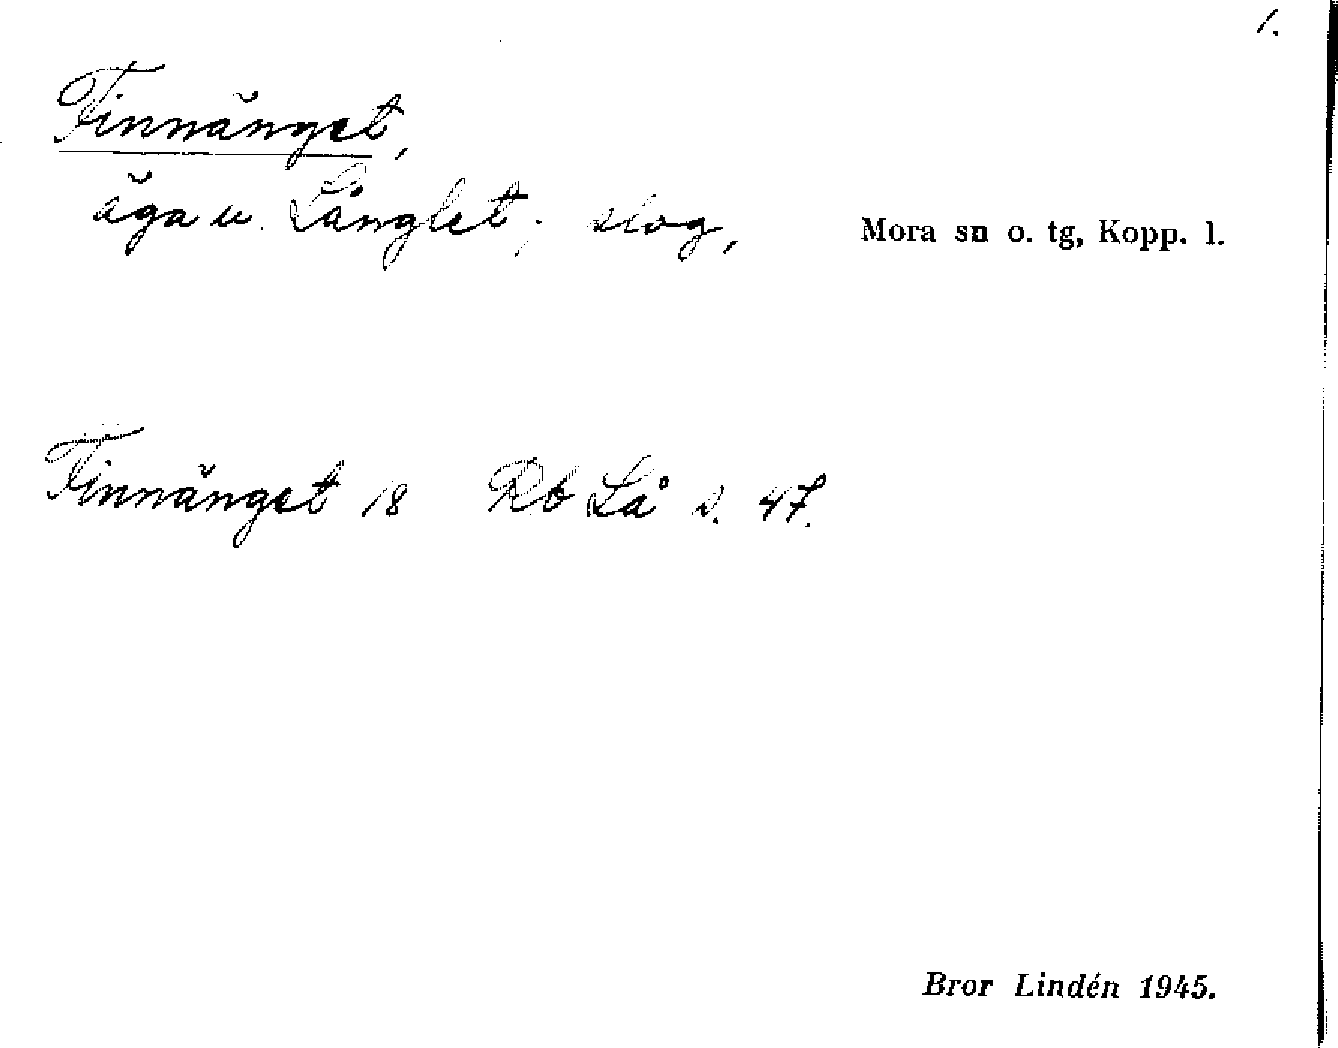 1.
Finnänget,
äga u. Långlet; slog, Mora sn o. tg, Kopp. l.
Finnänget 18 Rb Lå s. 47.
Bror Lindén 1945.